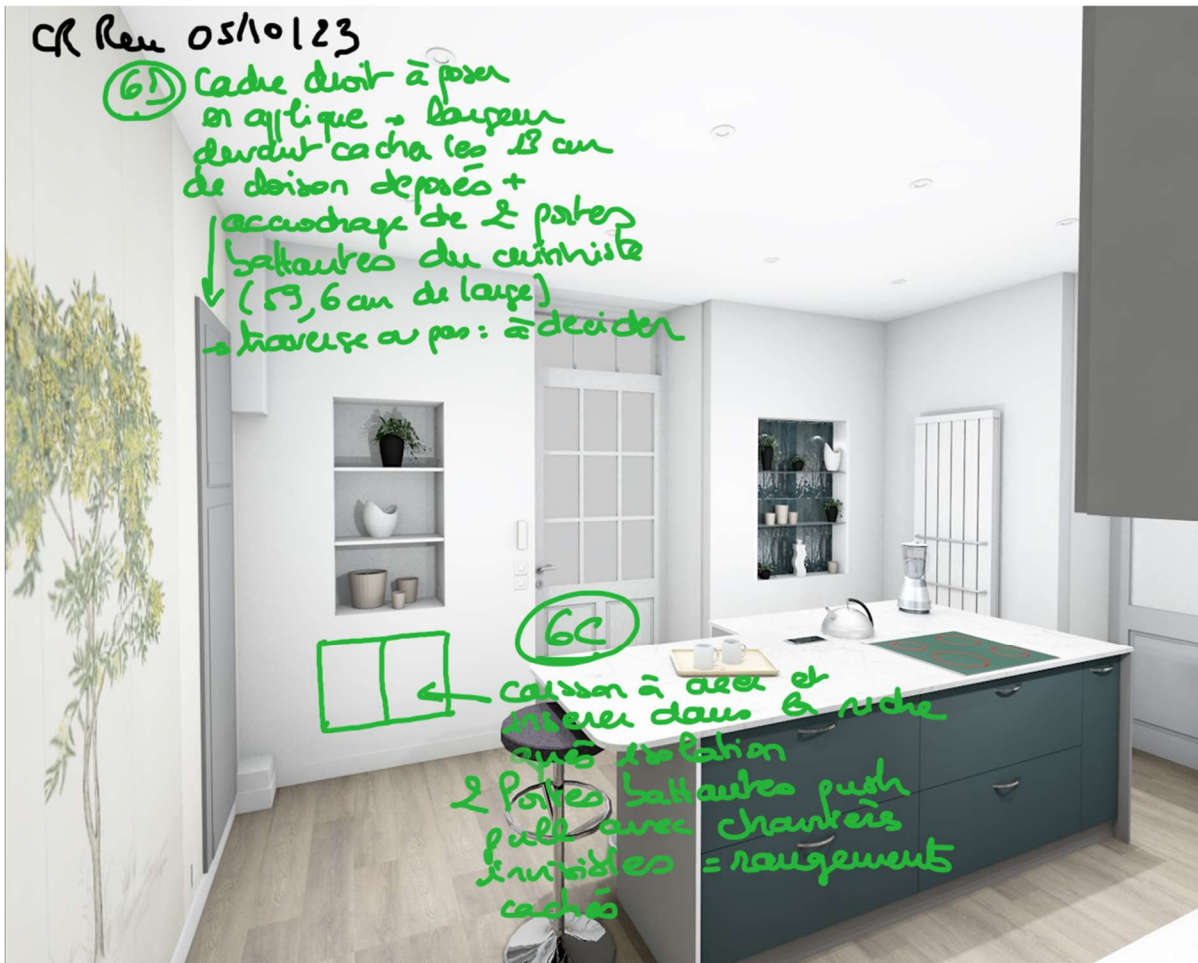 CR Reu 05/10/23
6D Cadre droit à poser
en applique → largeur
devant cacher les 13 cm
de cloison déposés +
accrochage de 2 portes
battantes du cuisiniste
(59,6 cm de large)
→ traverse ou pas : à decider
6C
caisson à créer et
inserer dans la niche
après isolation
2 Portes battantes push
pull avec charnières
invisibles = rangements
cachés